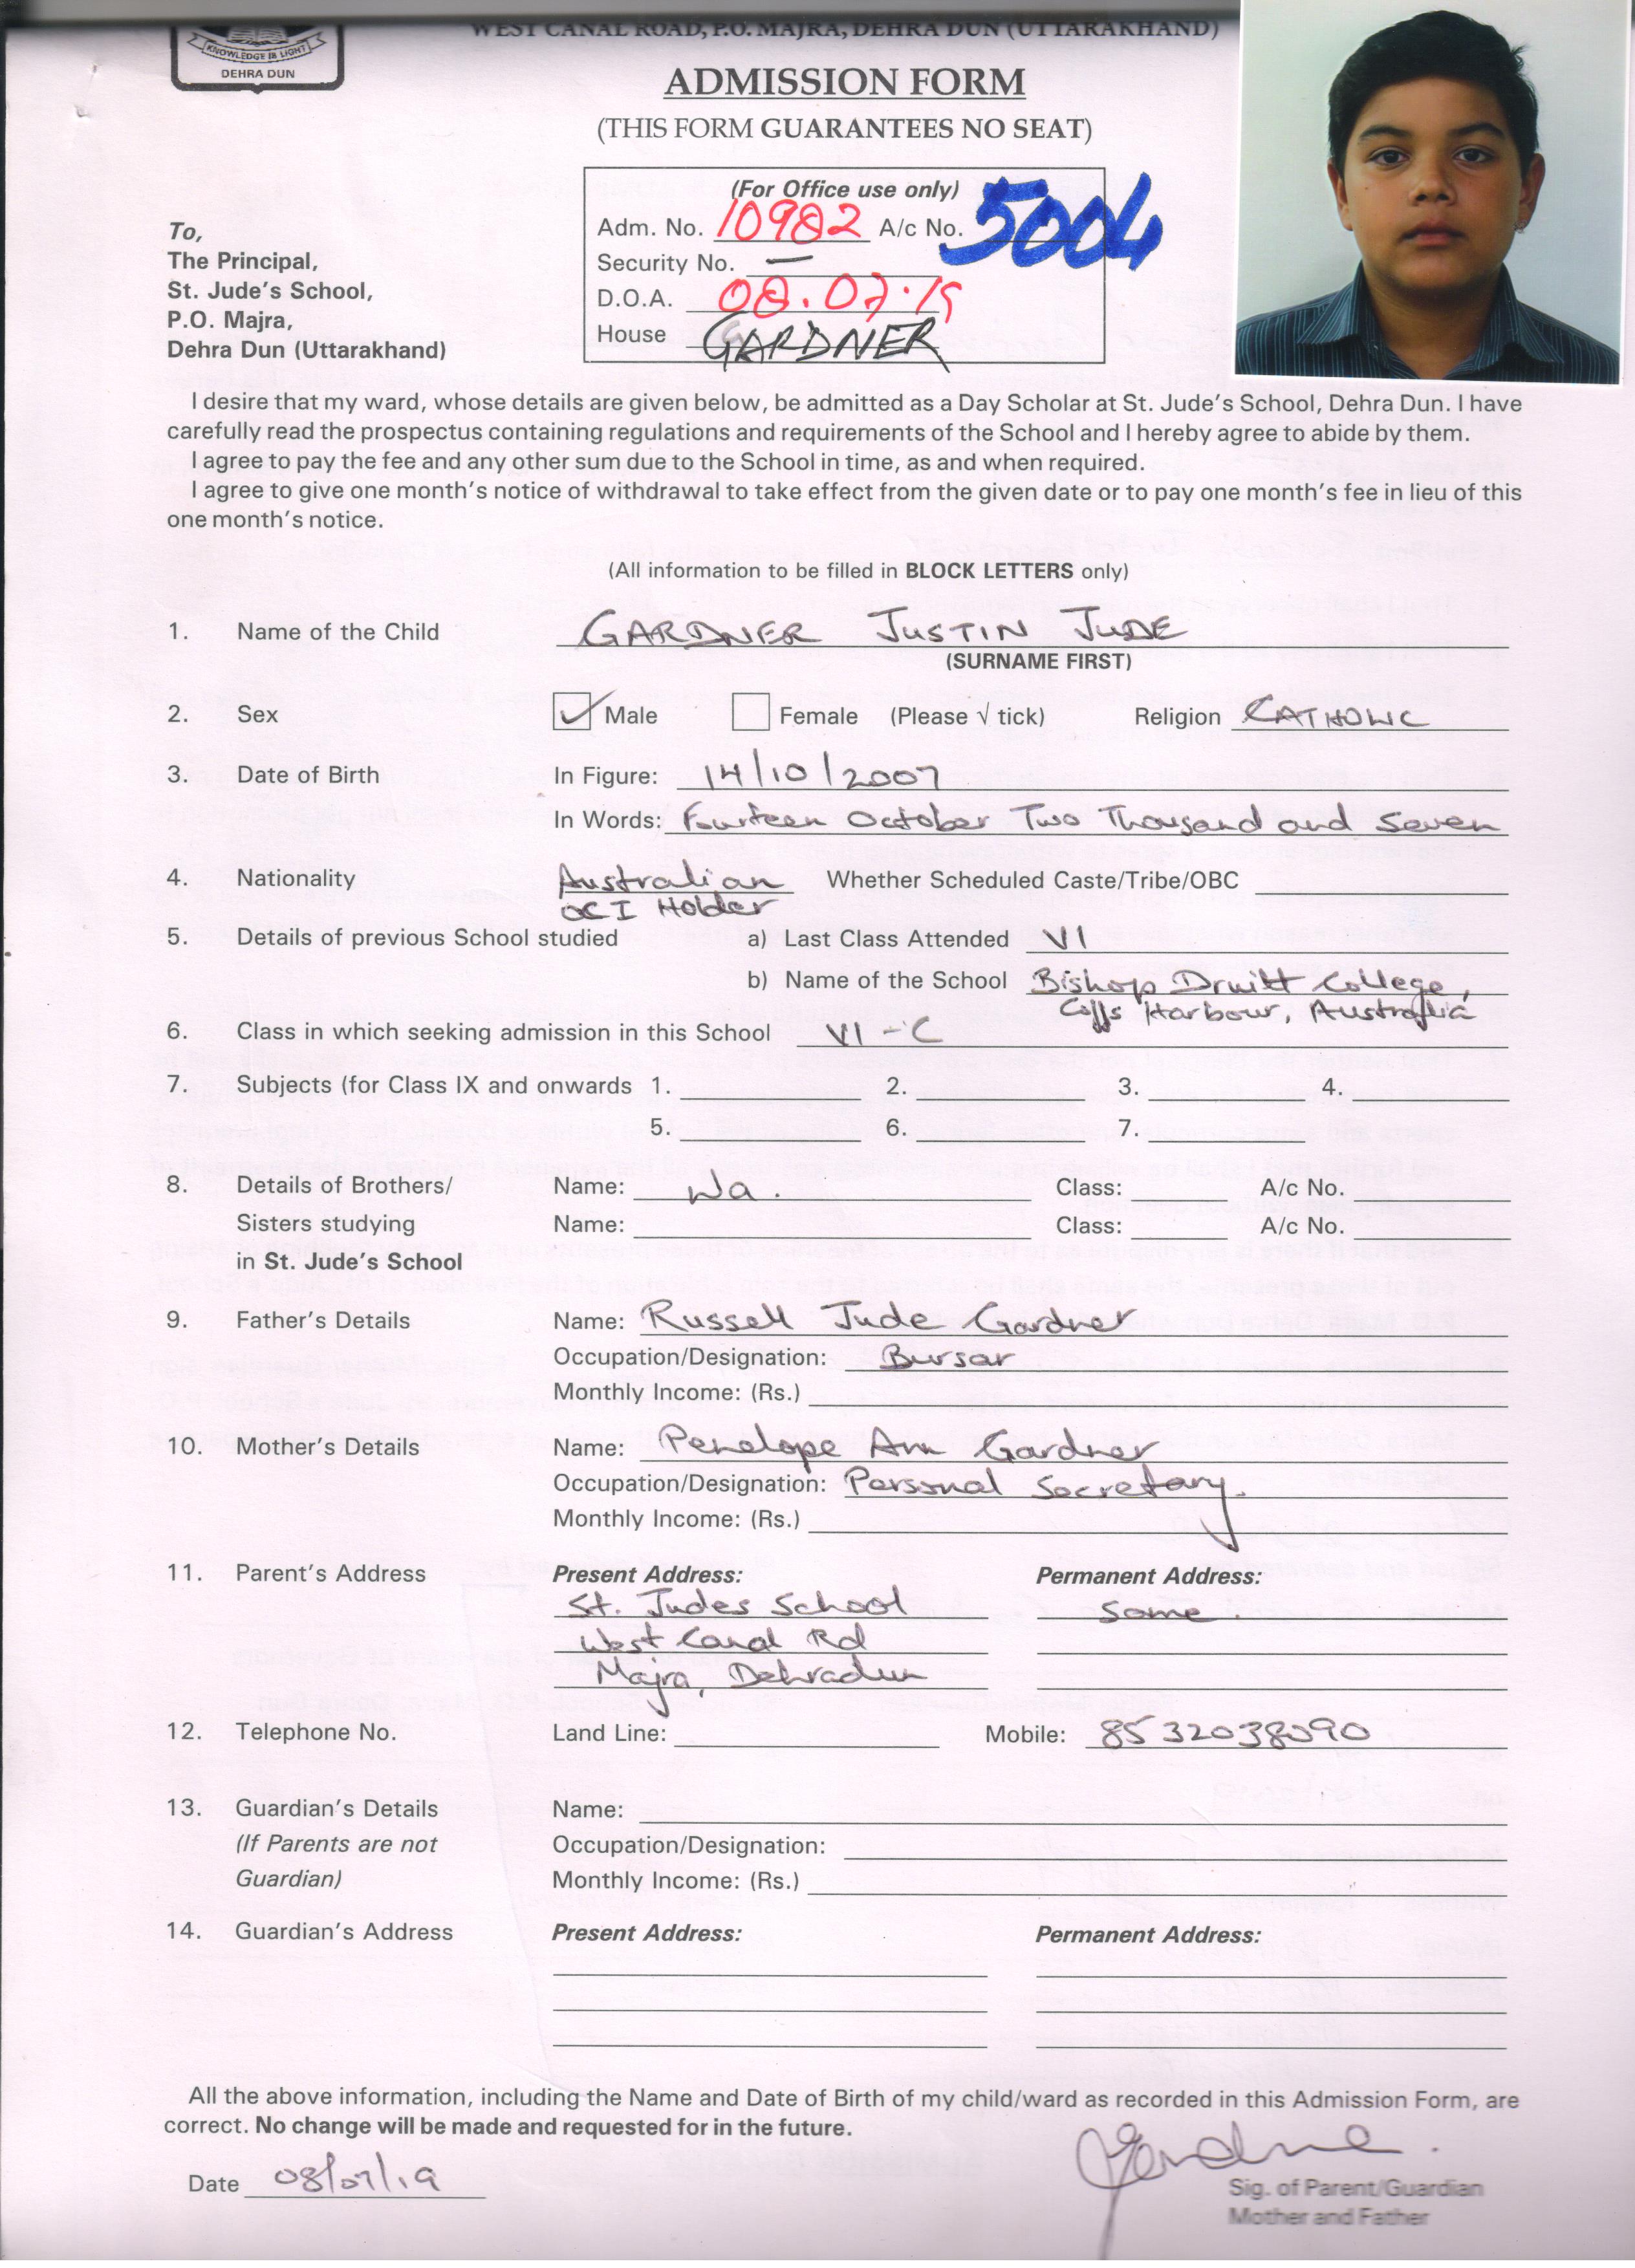 WEST CANAL ROAD, P.O. MAJRA, DEHRA DUN (UTTARAKHAND)
KNOWLEDGE IS LIGHT
DEHRA DUN
ADMISSION FORM
(THIS FORM GUARANTEES NO SEAT)
(For Office use only)
Adm. No. 10982 A/c No. 5004
Security No. —
D.O.A. 08.07.19
House GARDNER
To,
The Principal,
St. Jude's School,
P.O. Majra,
Dehra Dun (Uttarakhand)
I desire that my ward, whose details are given below, be admitted as a Day Scholar at St. Jude's School, Dehra Dun. I have
carefully read the prospectus containing regulations and requirements of the School and I hereby agree to abide by them.
I agree to pay the fee and any other sum due to the School in time, as and when required.
I agree to give one month's notice of withdrawal to take effect from the given date or to pay one month's fee in lieu of this
one month's notice.
(All information to be filled in BLOCK LETTERS only)
1. Name of the Child GARDNER JUSTIN JUDE
(SURNAME FIRST)
2. Sex Male Female (Please √ tick) Religion CATHOLIC
3. Date of Birth In Figure: 14/10/2007
In Words: Fourteen October Two Thousand and Seven
4. Nationality Australian Whether Scheduled Caste/Tribe/OBC
OCI Holder
5. Details of previous School studied a) Last Class Attended VI
b) Name of the School Bishop Druitt College,
Coffs Harbour, Australia
6. Class in which seeking admission in this School VI-C
7. Subjects (for Class IX and onwards 1. 2. 3. 4.
5. 6. 7.
8. Details of Brothers/ Name: N/a. Class: A/c No.
Sisters studying Name: Class: A/c No.
in St. Jude's School
9. Father's Details Name: Russell Jude Gardner
Occupation/Designation: Bursar
Monthly Income: (Rs.)
10. Mother's Details Name: Penelope Ann Gardner
Occupation/Designation: Personal Secretary.
Monthly Income: (Rs.)
11. Parent's Address Present Address: Permanent Address:
St. Judes School Same.
West Canal Rd
Majra, Dehradun
12. Telephone No. Land Line: Mobile: 8532038090
13. Guardian's Details Name:
(If Parents are not Occupation/Designation:
Guardian) Monthly Income: (Rs.)
14. Guardian's Address Present Address: Permanent Address:
All the above information, including the Name and Date of Birth of my child/ward as recorded in this Admission Form, are
correct. No change will be made and requested for in the future.
Date 08/07/19
Sig. of Parent/Guardian
Mother and Father